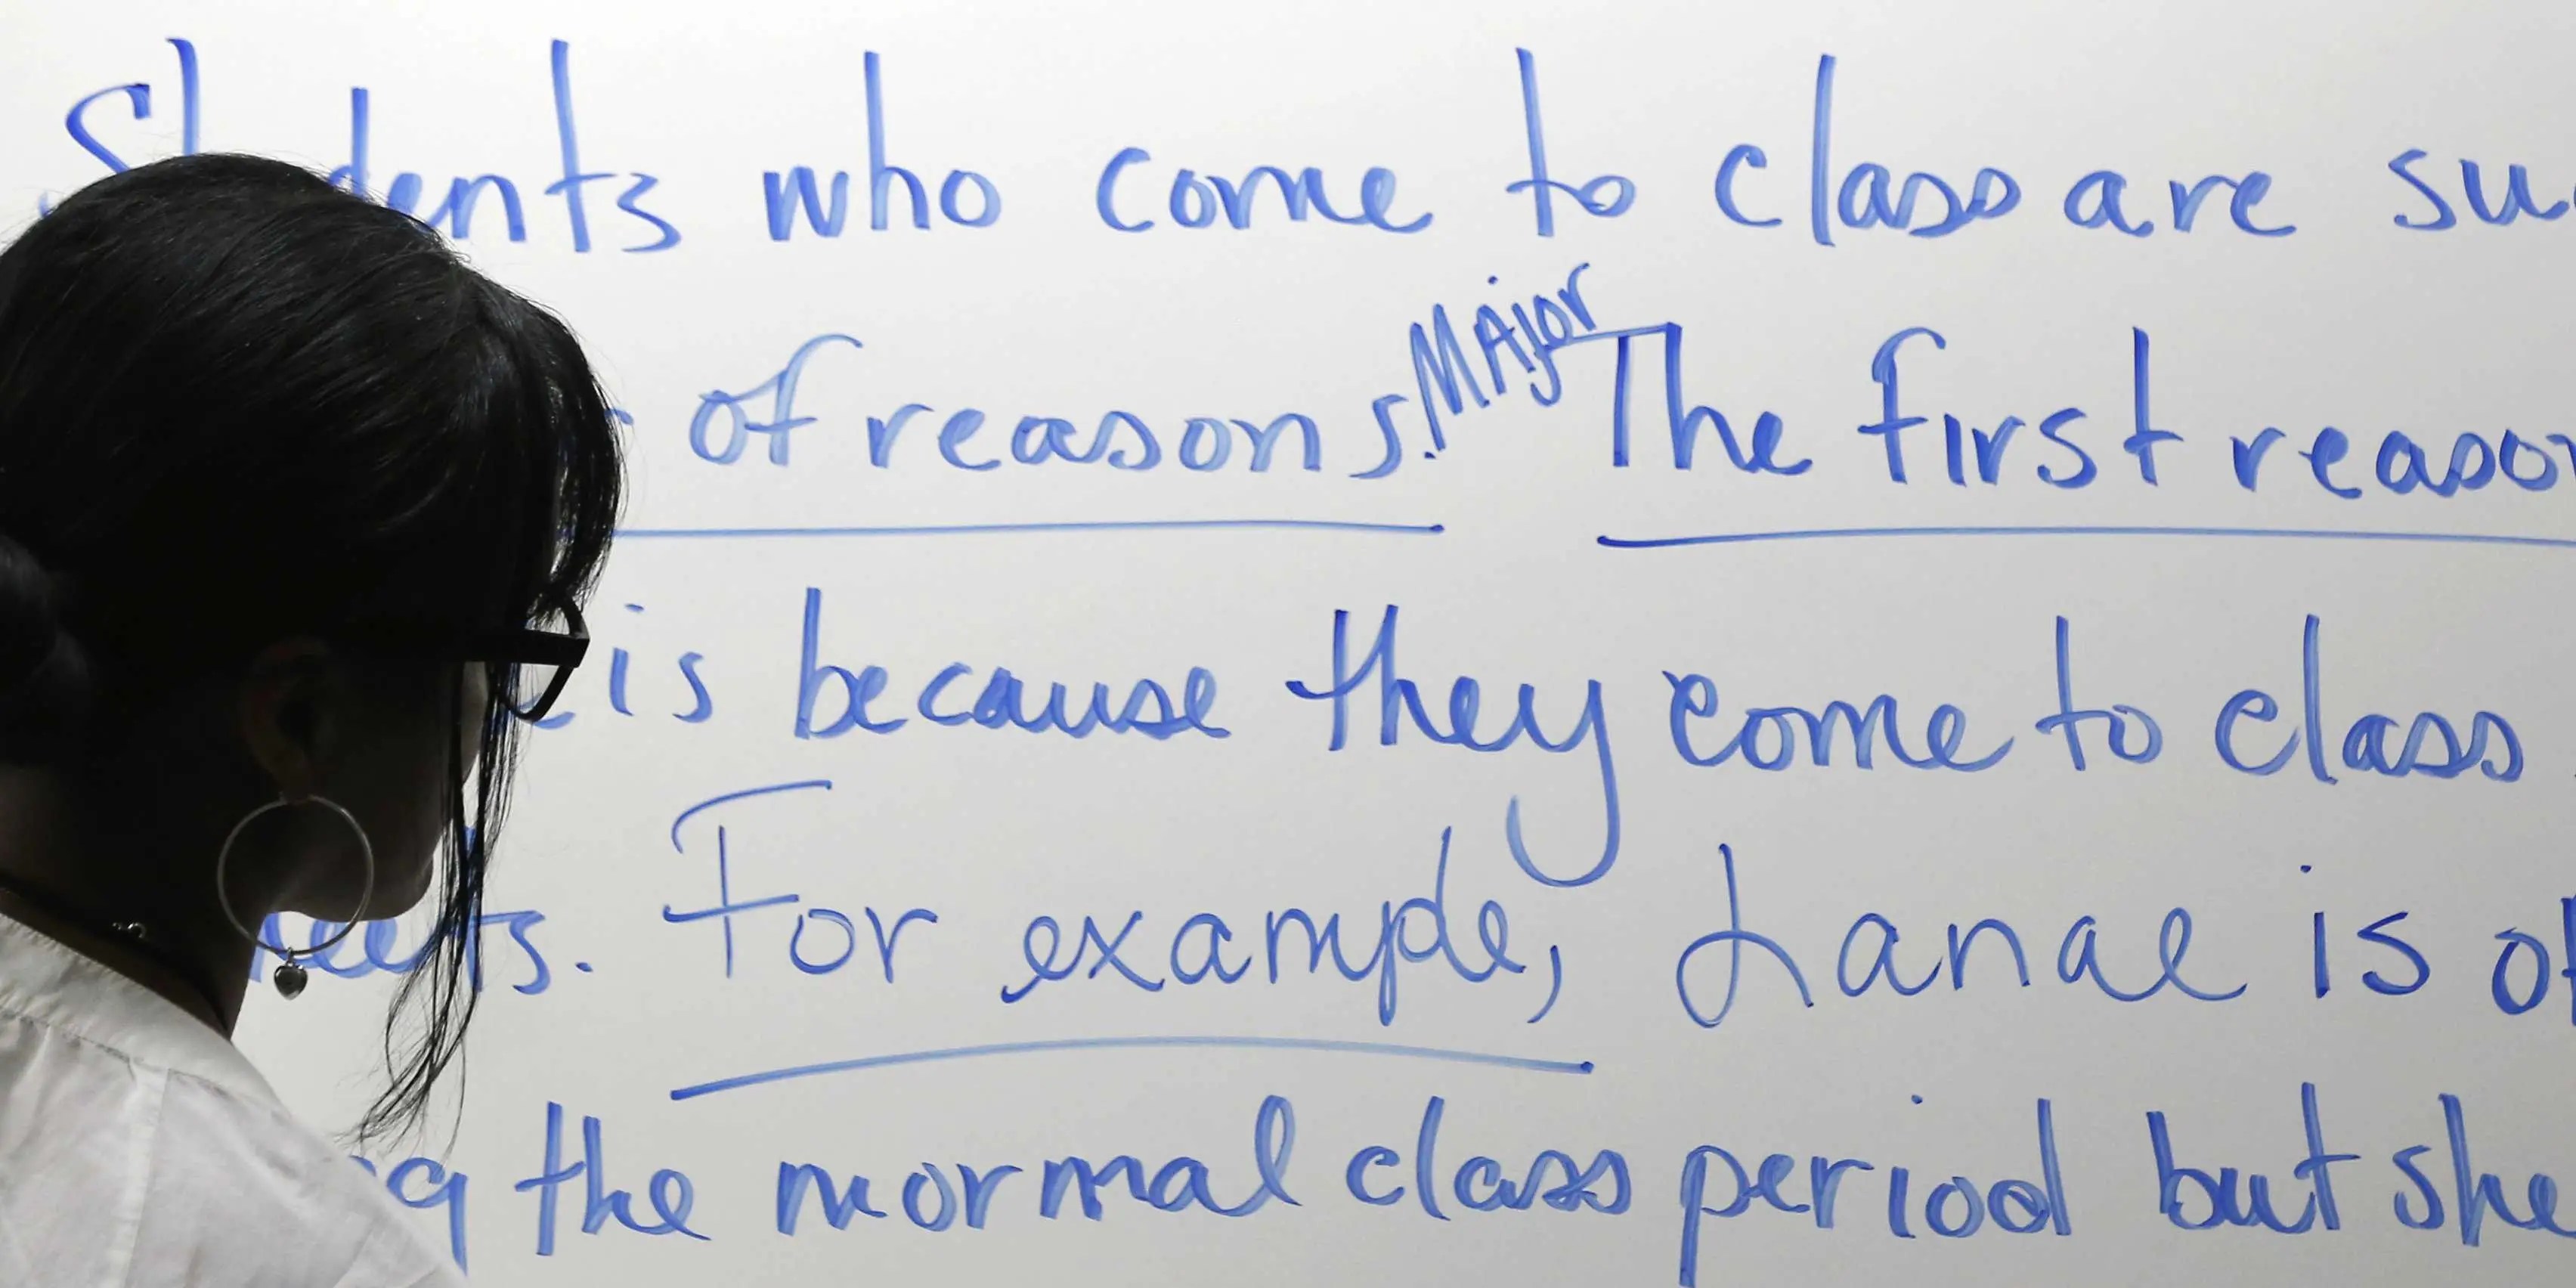 Students who come to class are su
of reasons. Major The first reason
is because they come to class
For example, Lanae is of
the normal class period but she